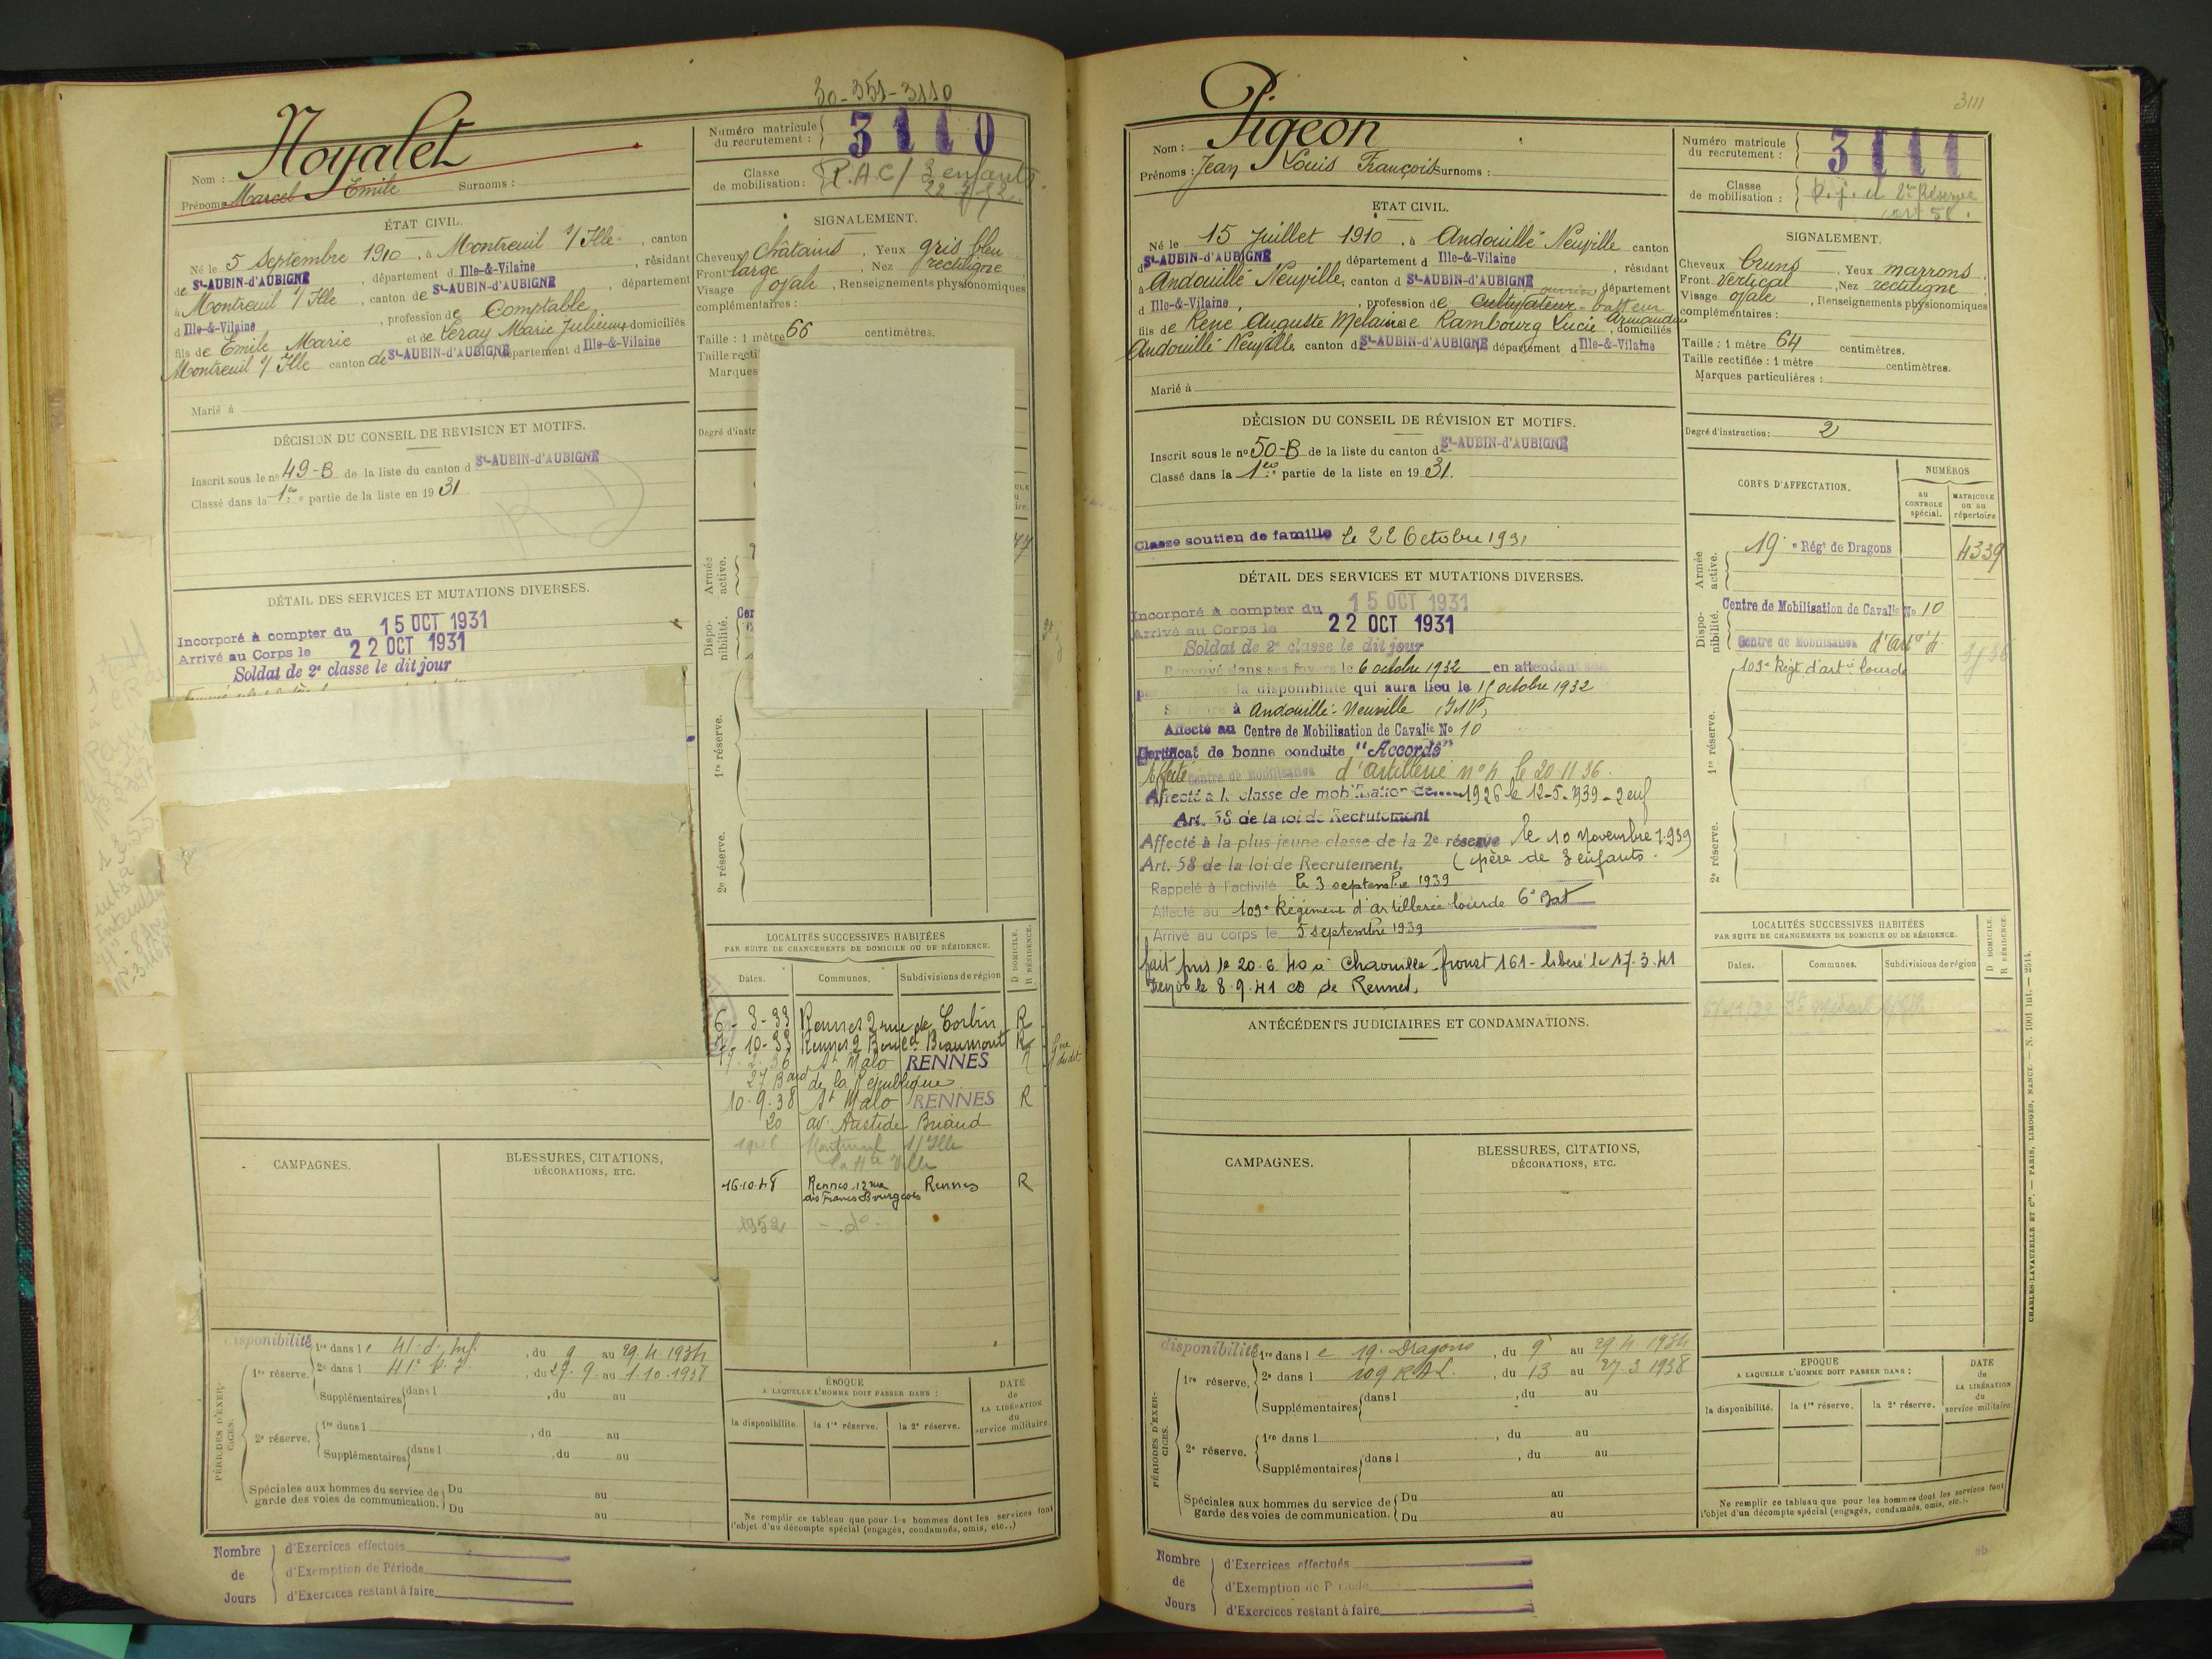 30-351-3110
Noyalet
Nom :
Prénoms Marcel Emile Surnoms :
Numéro matricule du recrutement : 3110
Classe de mobilisation : P.A.C / 3 enfants
ÉTAT CIVIL.
Né le 5 Septembre 1910, à Montreuil s/ Ille, canton
de St-AUBIN-d'AUBIGNÉ, département d Ille-&-Vilaine, résidant
à Montreuil s/ Ille, canton de St-AUBIN-d'AUBIGNÉ, département
d Ille-&-Vilaine, profession de Comptable
fils de Emile Marie et de Leray Marie Julienne domiciliés
Montreuil s/ Ille canton de St-AUBIN-d'AUBIGNÉ département d Ille-&-Vilaine
Marié à
SIGNALEMENT.
Cheveux Châtains, Yeux gris bleu
Front large, Nez rectiligne
Visage ovale, Renseignements physionomiques
complémentaires :
Taille : 1 mètre 66 centimètres.
Taille recti
Marques
Degré d'instr
DÉCISION DU CONSEIL DE REVISION ET MOTIFS.
Inscrit sous le no 49-B de la liste du canton d St-AUBIN-d'AUBIGNÉ
Classé dans la 1re partie de la liste en 1931
DÉTAIL DES SERVICES ET MUTATIONS DIVERSES.
Incorporé à compter du 15 OCT 1931
Arrivé au Corps le 22 OCT 1931
Soldat de 2e classe le dit jour
Armée active.
Disponibilité.
1re réserve.
2e réserve.
LOCALITÉS SUCCESSIVES HABITÉES
PAR SUITE DE CHANGEMENTS DE DOMICILE OU DE RÉSIDENCE.
D DOMICILE.
R RÉSIDENCE.
Dates. Communes. Subdivisions de région
6-3-33 Rennes 2 rue de Corbin R
10-33 Rennes 2 Boul. Beaumont R
St Malo RENNES
27 Bard de la République
10-9-38 St Malo RENNES R
20 av. Aristide Briand
Montreuil s/Ille
16-10-48 Rennes 12 rue des Francs Bourgeois Rennes R
1952 - do -
CAMPAGNES.
BLESSURES, CITATIONS,
DÉCORATIONS, ETC.
disponibilité 1re dans l e 41 d. inf., du 9 au 29.4.1934
1re réserve. 2e dans l 41e, du 27.9. au 1.10.1938
Supplémentaires dans l, du au
2e réserve. 1re dans l, du au
Supplémentaires dans l, du au
PÉRIODES D'EXERCICES.
Spéciales aux hommes du service de garde des voies de communication. Du au
Du au
ÉPOQUE
A LAQUELLE L'HOMME DOIT PASSER DANS :
la disponibilité. la 1re réserve. la 2e réserve.
DATE de LA LIBÉRATION du service militaire.
Ne remplir ce tableau que pour les hommes dont les services font
l'objet d'un décompte spécial (engagés, condamnés, omis, etc.,)
Nombre de Jours
d'Exercices effectués
d'Exemption de Période
d'Exercices restant à faire
3111
Pigeon
Nom :
Prénoms : Jean Louis François Surnoms :
Numéro matricule du recrutement : 3111
Classe de mobilisation : 2me Réserve
art 58.
ETAT CIVIL.
Né le 15 Juillet 1910, à Andouillé Neuville canton
d St-AUBIN-d'AUBIGNÉ, département d Ille-&-Vilaine, résidant
à Andouillé Neuville, canton d St-AUBIN-d'AUBIGNÉ, département
d Ille-&-Vilaine, profession de cultivateur ouvrier batteur
fils de René Auguste Melaine et de Rambourg Lucie Armandine, domiciliés
Andouillé Neuville canton d St-AUBIN-d'AUBIGNÉ département d Ille-&-Vilaine
Marié à
SIGNALEMENT.
Cheveux bruns, Yeux marrons
Front Vertical, Nez rectiligne
Visage ovale, Renseignements physionomiques
complémentaires :
Taille : 1 mètre 64 centimètres.
Taille rectifiée : 1 mètre centimètres.
Marques particulières :
Degré d'instruction : 2
DÉCISION DU CONSEIL DE RÉVISION ET MOTIFS.
Inscrit sous le no 50-B de la liste du canton d St-AUBIN-d'AUBIGNÉ
Classé dans la 1re partie de la liste en 1931.
Classé soutien de famille le 22 Octobre 1931
CORPS D'AFFECTATION.
NUMÉROS
au CONTROLE spécial. MATRICULE ou au répertoire
Armée active. 19e Régt de Dragons 4339
Disponibilité. Centre de Mobilisation de Cavalie No 10
Centre de Mobilisation d'Artie 4
109e Régt d'artie lourde
1re réserve.
2e réserve.
DÉTAIL DES SERVICES ET MUTATIONS DIVERSES.
Incorporé à compter du 15 OCT 1931
Arrivé au Corps le 22 OCT 1931
Soldat de 2e classe le dit jour
Renvoyé dans ses foyers le 6 octobre 1932 en attendant son
la disponibilité qui aura lieu le 15 octobre 1932
à Andouillé-Neuville (I&V)
Affecté au Centre de Mobilisation de Cavalie No 10
Certificat de bonne conduite "Accordé"
Affecté Centre de Mobilisation d'artillerie no 4 le 20 11 36.
Affecté à la classe de mobilisation de 1926 le 12-5-939-2 enf
Art. 58 de la loi de Recrutement
Affecté à la plus jeune classe de la 2e réserve le 10 Novembre 1939
Art. 58 de la loi de Recrutement. (père de 3 enfants.
Rappelé à l'activité le 3 septembre 1939
Affecté au 109e Régiment d'artillerie lourde 6e Bat
Arrivé au corps le 5 septembre 1939
fait pris le 20.6.40 à Chaouille - front 161 - libéré le 17.3.41
le 8.9.41 de Rennes.
ANTÉCÉDENTS JUDICIAIRES ET CONDAMNATIONS.
LOCALITÉS SUCCESSIVES HABITÉES
PAR SUITE DE CHANGEMENTS DE DOMICILE OU DE RÉSIDENCE.
D DOMICILE.
R RÉSIDENCE.
Dates. Communes. Subdivisions de région
CAMPAGNES.
BLESSURES, CITATIONS,
DÉCORATIONS, ETC.
disponibilité 1re dans l e 19e Dragons, du 9 au 29 4 1934
1re réserve. 2e dans l 109 RAL., du 13 au 27 3 1938
Supplémentaires dans l, du au
2e réserve. 1re dans l, du au
Supplémentaires dans l, du au
PÉRIODES D'EXERCICES.
Spéciales aux hommes du service de garde des voies de communication. Du au
Du au
EPOQUE
A LAQUELLE L'HOMME DOIT PASSER DANS :
la disponibilité. la 1re réserve. la 2e réserve.
DATE de LA LIBÉRATION du service militaire.
Ne remplir ce tableau que pour les hommes dont les services font
l'objet d'un décompte spécial (engagés, condamnés, omis, etc.).
CHARLES-LAVAUZELLE ET Cie. — PARIS, LIMOGES, NANCY. — N. 1001 Int. — 2514.
Nombre de Jours
d'Exercices effectués
d'Exemption de Période
d'Exercices restant à faire